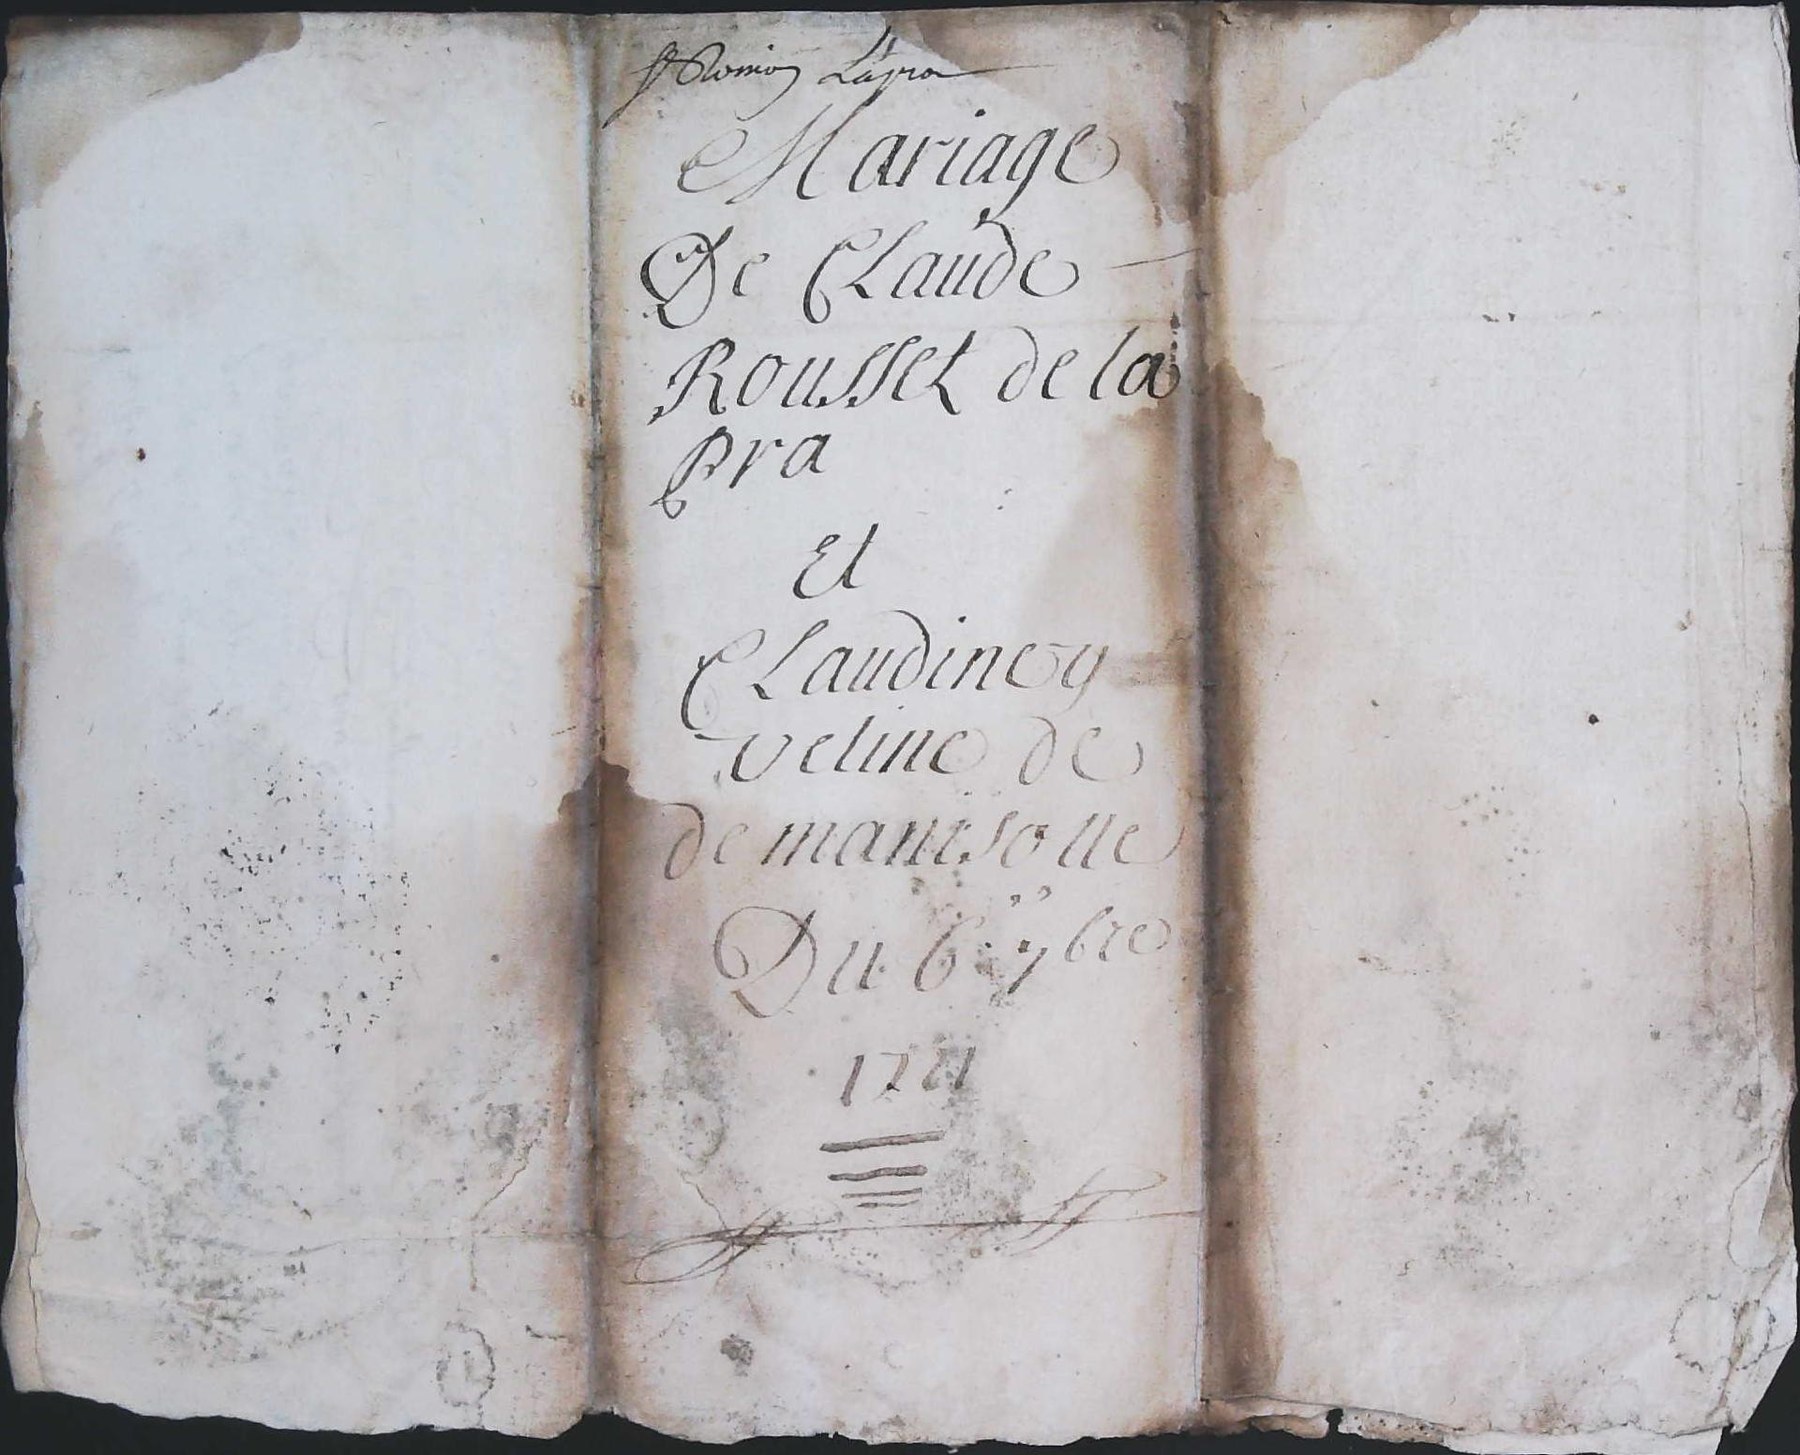 St Romain Lapra
Mariage
De Claude
Rousset de la
Pra
Et
Claudine y
veline de
de manisolle
Du 6 7bre
1721